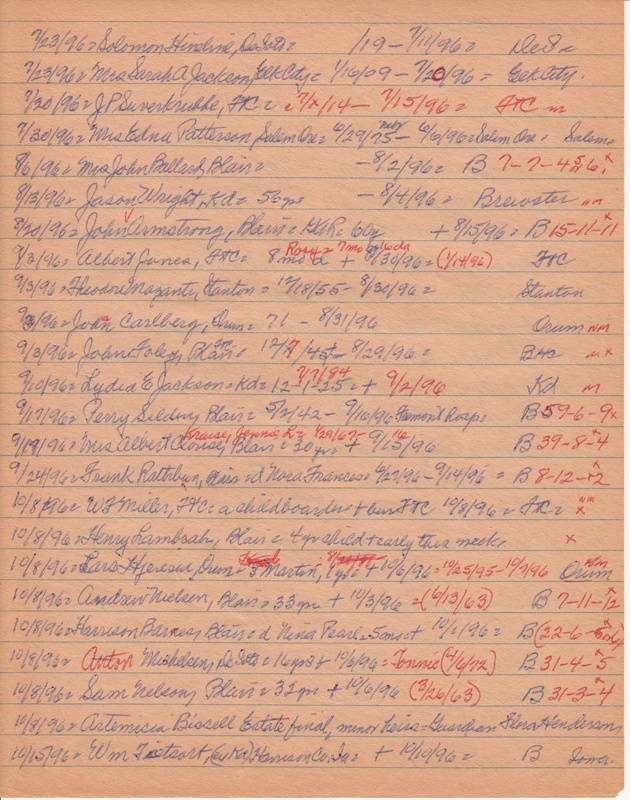 7/23/96 = Solomon Hineline, DeSoto = /19 - 7/11/96 = DeSo
7/23/96 = Mrs Sarah A Jackson, Elk City = 1/16/09 - 7/20/96 = Elk City.
7/20/96 = J P Suverkrubbe, FtC = 7/x/14 - 7/15/96 = FtC m
7/30/96 = Mrs Edna Patterson, Salem Ore = 6/29/75 - 6/6/96 = Salem Ore = Salem
8/6/96 = Mrs John Ballard, Blair = - 8/2/96 = B 7-7-4 6 x
8/13/96 = Jason Wright, Kd = 56 yr = - 8/4/96 = Brewster nm
8/20/96 = John Armstrong, Blair = 60y + 8/15/96 = B 15-11-11 x
Rosy = 7 mo 16 da
9/3/96 = Albert Jones, FtC = 8 mo d + 8/30/96 = (1/14/96) FtC
9/3/96 = Theodore Mozante, Stanton = 12/18/55 - 8/30/96 = Stanton
9/8/96 = John Carlberg, Orum = 71 - 8/31/96 Orum nm
9/3/96 = John Foley, Blair = 12/7/45 + 8/29/96 = BHC mx
7/7/84
9/10/96 = Lydia E Jackson = Kd = 12-1-25 = + 9/2/96 Kd m
9/17/96 = Perry Selden, Blair = 5/2/42 - 9/16/96 Fremont Hosp = B 59-6-9 x
Krause, Jennie L = 4/29/67 - 16
9/19/96 = Mrs Albert Krause, Blair = 30 yr + 9/15/96 B 39-8-4 x
9/24/96 = Frank Rathbun, Blair = d Nora Frances = 4/27/96 - 9/14/96 = B 8-12-2 x
10/8/96 = W S Miller, FtC = a child boarder + bur FtC 10/3/96 = FtC = x nm
10/8/96 = Henry Lambsah, Blair = 4 yr child + early this week. x
10/8/96 = Lars Hjeresen, Orum = s Martin, 1 yr = + 10/6/96 = 10/25/95 - 10/7/96 Orum nm
10/8/96 = Andrew Nielsen, Blair = 33 yr + 10/3/96 = (6/13/63) B 7-11-12 x
10/8/96 = Harrison Barnes, Blair = d Nina Pearl = 5 mos + 10/1/96 = B (22-6-6 only)
10/8/96 = Anton Mickelsen, DeSoto = 16 yrs + 10/6/96 = Tonnie (4/6/72) B 31-4-5 x
10/8/96 = Sam Nelson, Blair = 32 yr + 10/6/96 (3/26/63) B 31-3-4 x
10/8/96 = Artemisia Bissell Estate final, minor heirs = Guardian Henderson
10/15/96 = Wm Tietsort, (ex Kd) Harrison Co Ia = + 10/10/96 = B Iowa.